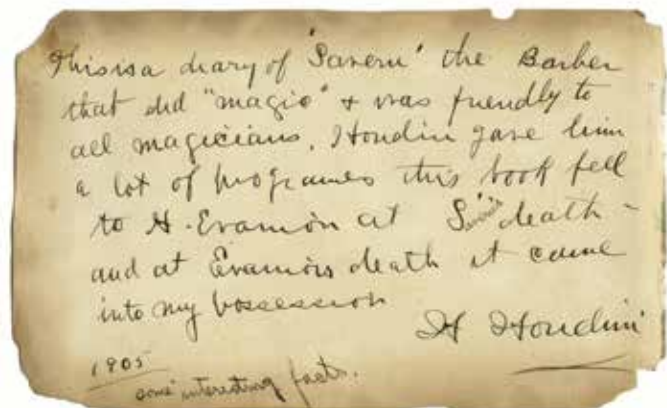 This is a diary of 'Savern' the Barber
that did "magic" & was friendly to
all magicians. Houdin gave him
a lot of programes this book fell
to H. Evanion at S 's death -
and at Evanions death it came
into my possession
H Houdini
1905
some interesting facts.